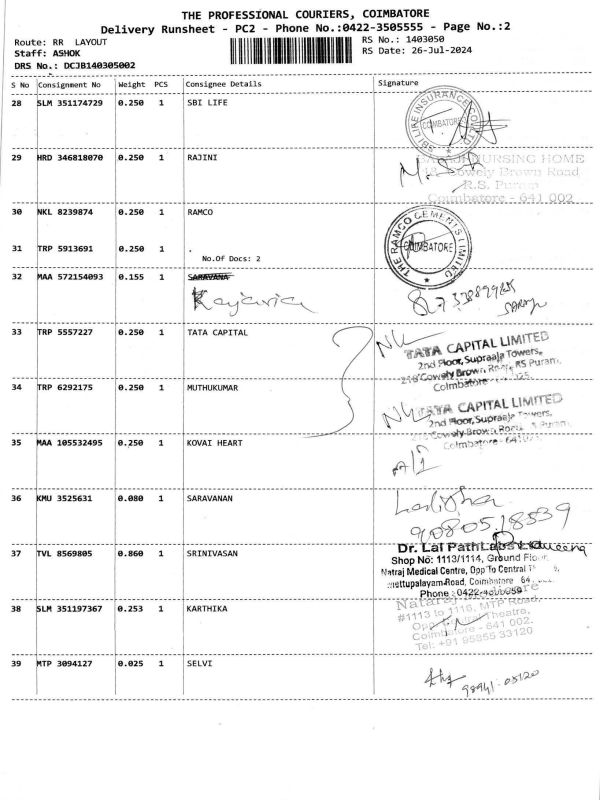 THE PROFESSIONAL COURIERS, COIMBATORE
Delivery Runsheet - PC2 - Phone No.:0422-3505555 - Page No.:2
Route: RR LAYOUT
RS No.: 1403050
Staff: ASHOK
RS Date: 26-Jul-2024
DRS No.: DCJB140305002
S No Consignment No Weight PCS Consignee Details Signature
28 SLM 351174729 0.250 1 SBI LIFE
SBI LIFE INSURANCE CO. LTD
COIMBATORE
29 HRD 346818070 0.250 1 RAJINI
NURSING HOME
Cowely Brown Road,
R.S. Puram
Coimbatore - 641 002
30 NKL 8239874 0.250 1 RAMCO
THE RAMCO CEMENTS LIMITED
COIMBATORE
31 TRP 5913691 0.250 1 .
No.Of Docs: 2
32 MAA 572154093 0.155 1 SARAVANA
33 TRP 5557227 0.250 1 TATA CAPITAL
TATA CAPITAL LIMITED
2nd Floor, Supraaja Towers,
Cowely Brown Road, RS Puram,
Coimbatore
34 TRP 6292175 0.250 1 MUTHUKUMAR
TATA CAPITAL LIMITED
2nd Floor, Supraaja Towers,
Cowely Brown Road
Coimbatore - 641
35 MAA 105532495 0.250 1 KOVAI HEART
36 KMU 3525631 0.080 1 SARAVANAN
9080518539
37 TVL 8569805 0.860 1 SRINIVASAN
Dr. Lal PathLabs
Shop No: 1113/1114, Ground Floor,
Natraj Medical Centre, Opp To Central
Mettupalayam Road, Coimbatore 64
Phone : 0422-
38 SLM 351197367 0.253 1 KARTHIKA
#1113 to 1116, MTP Road,
Theatre,
Coimbatore - 641 002.
Tel: +91 95855 33120
39 MTP 3094127 0.025 1 SELVI
98941-05120